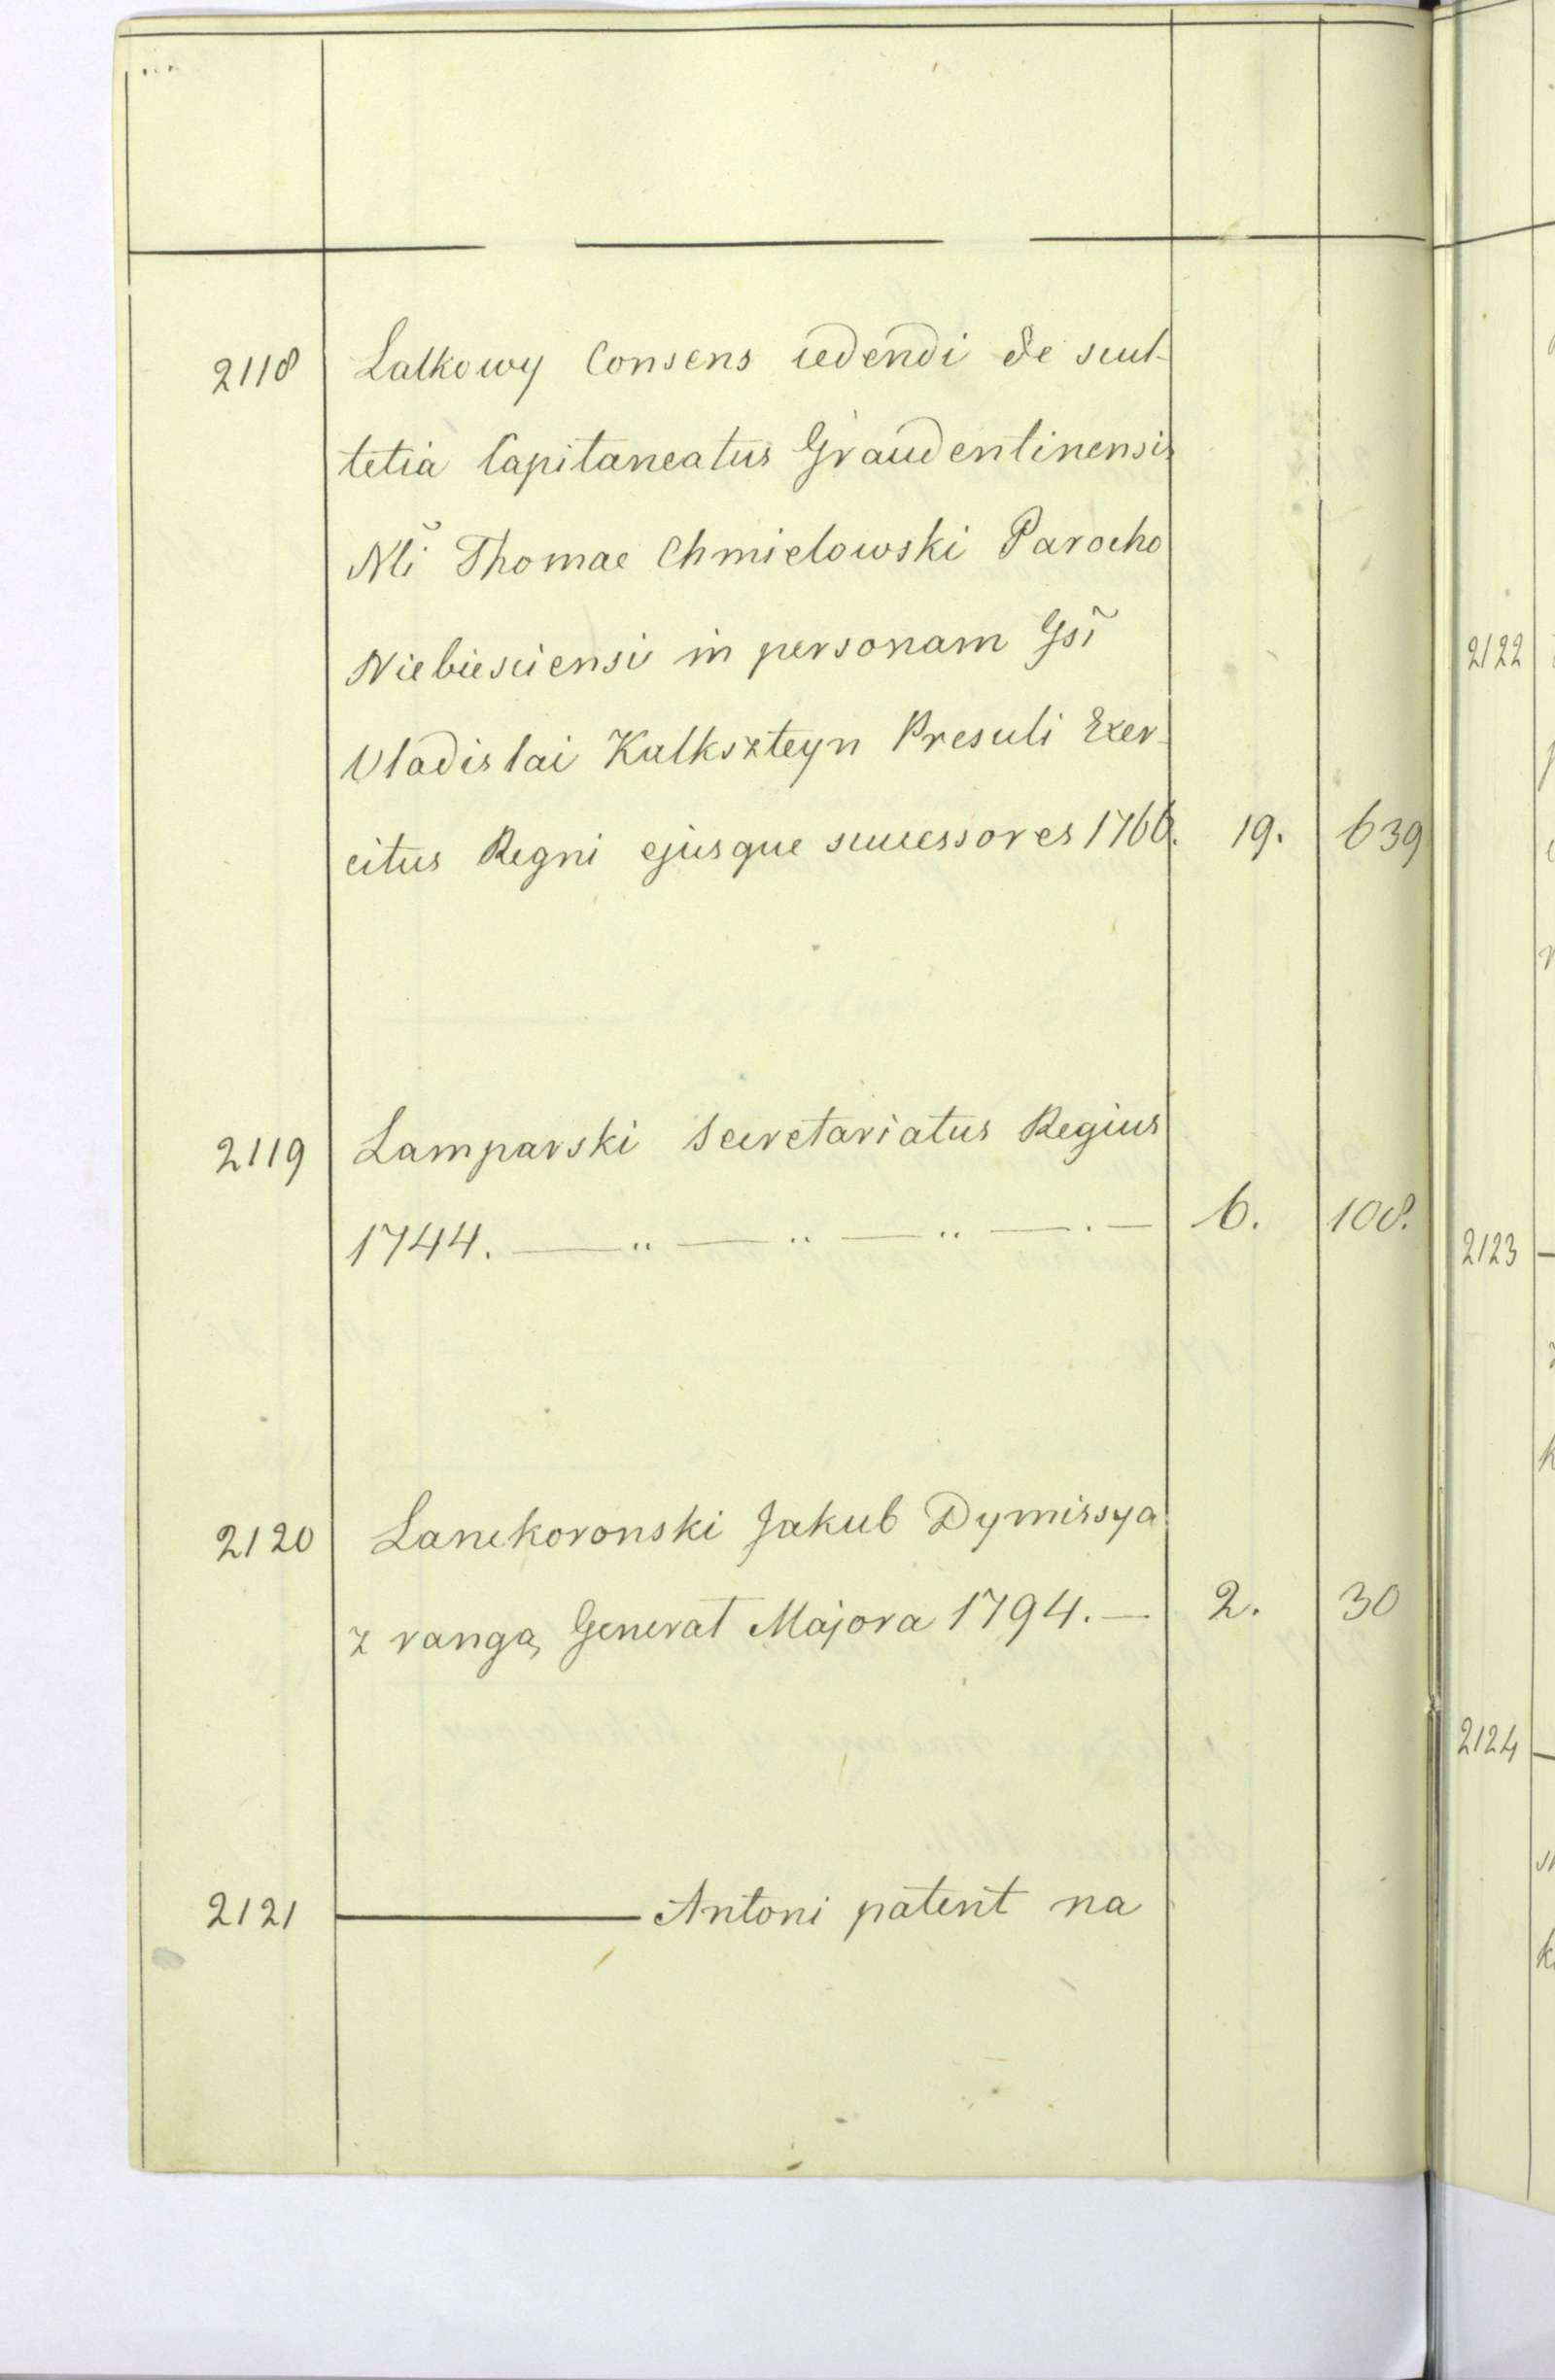 2118 Lalkowy Consens cedendi de scul-
tetia Capitaneatus Graudentinensis
Nli Thomae Chmielowski Parocho
Niebiesciensi in personam Gsi
Vladislai Kalkszteyn Presuli Exer-
citus Regni ejusque successores 1766. 19. 639
2119 Lamparski Secretariatus Regius
1744. — " — " — " — . — 6. 108.
2120 Lanckoronski Jakub Dymissya
z rangą Generał Majora 1794. — 2. 30
2121 ——— Antoni patent na
2122
2123
2124